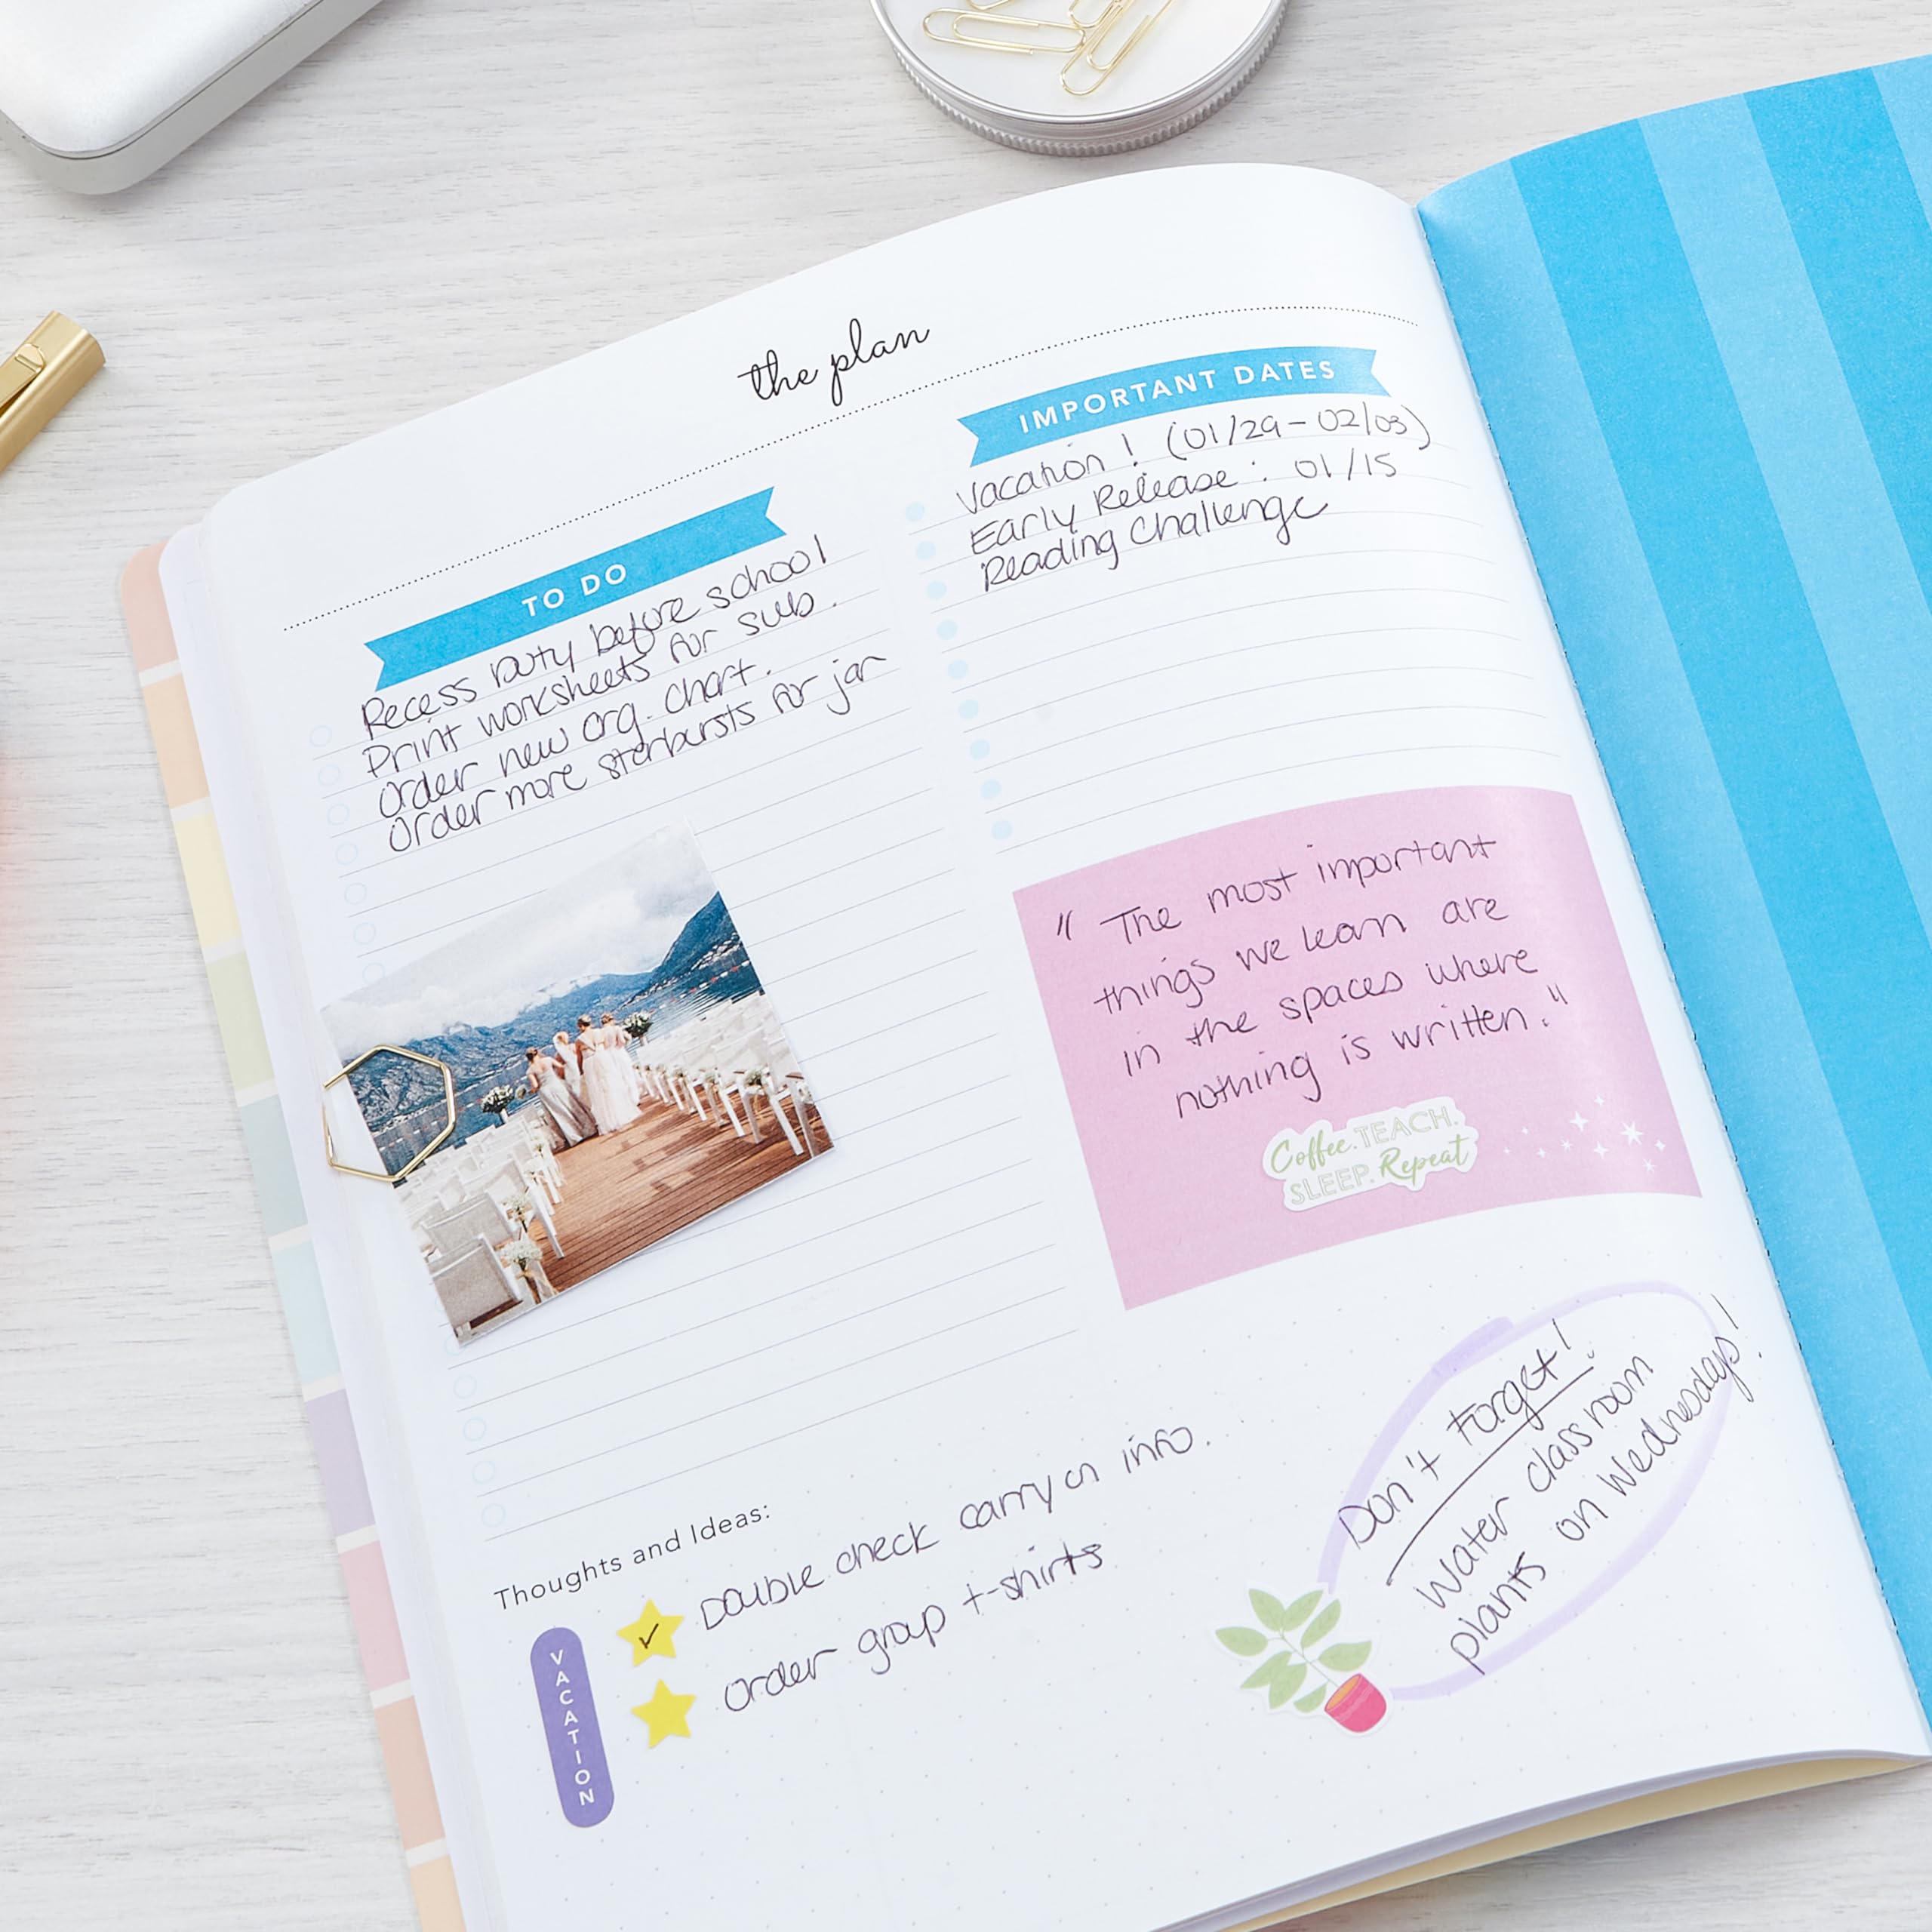 the plan
TO DO
Recess Duty before school
Print worksheets for sub.
Order new org. chart.
Order more starbursts for jar
IMPORTANT DATES
Vacation! (01/29-02/03)
Early Release: 01/15
Reading Challenge
"The most important
things we learn are
in the spaces where
nothing is written."
Coffee. TEACH.
SLEEP. Repeat
Thoughts and Ideas:
VACATION
Double check carry on info.
Order group t-shirts
Don't Forget!
Water classroom
plants on Wednesdays!